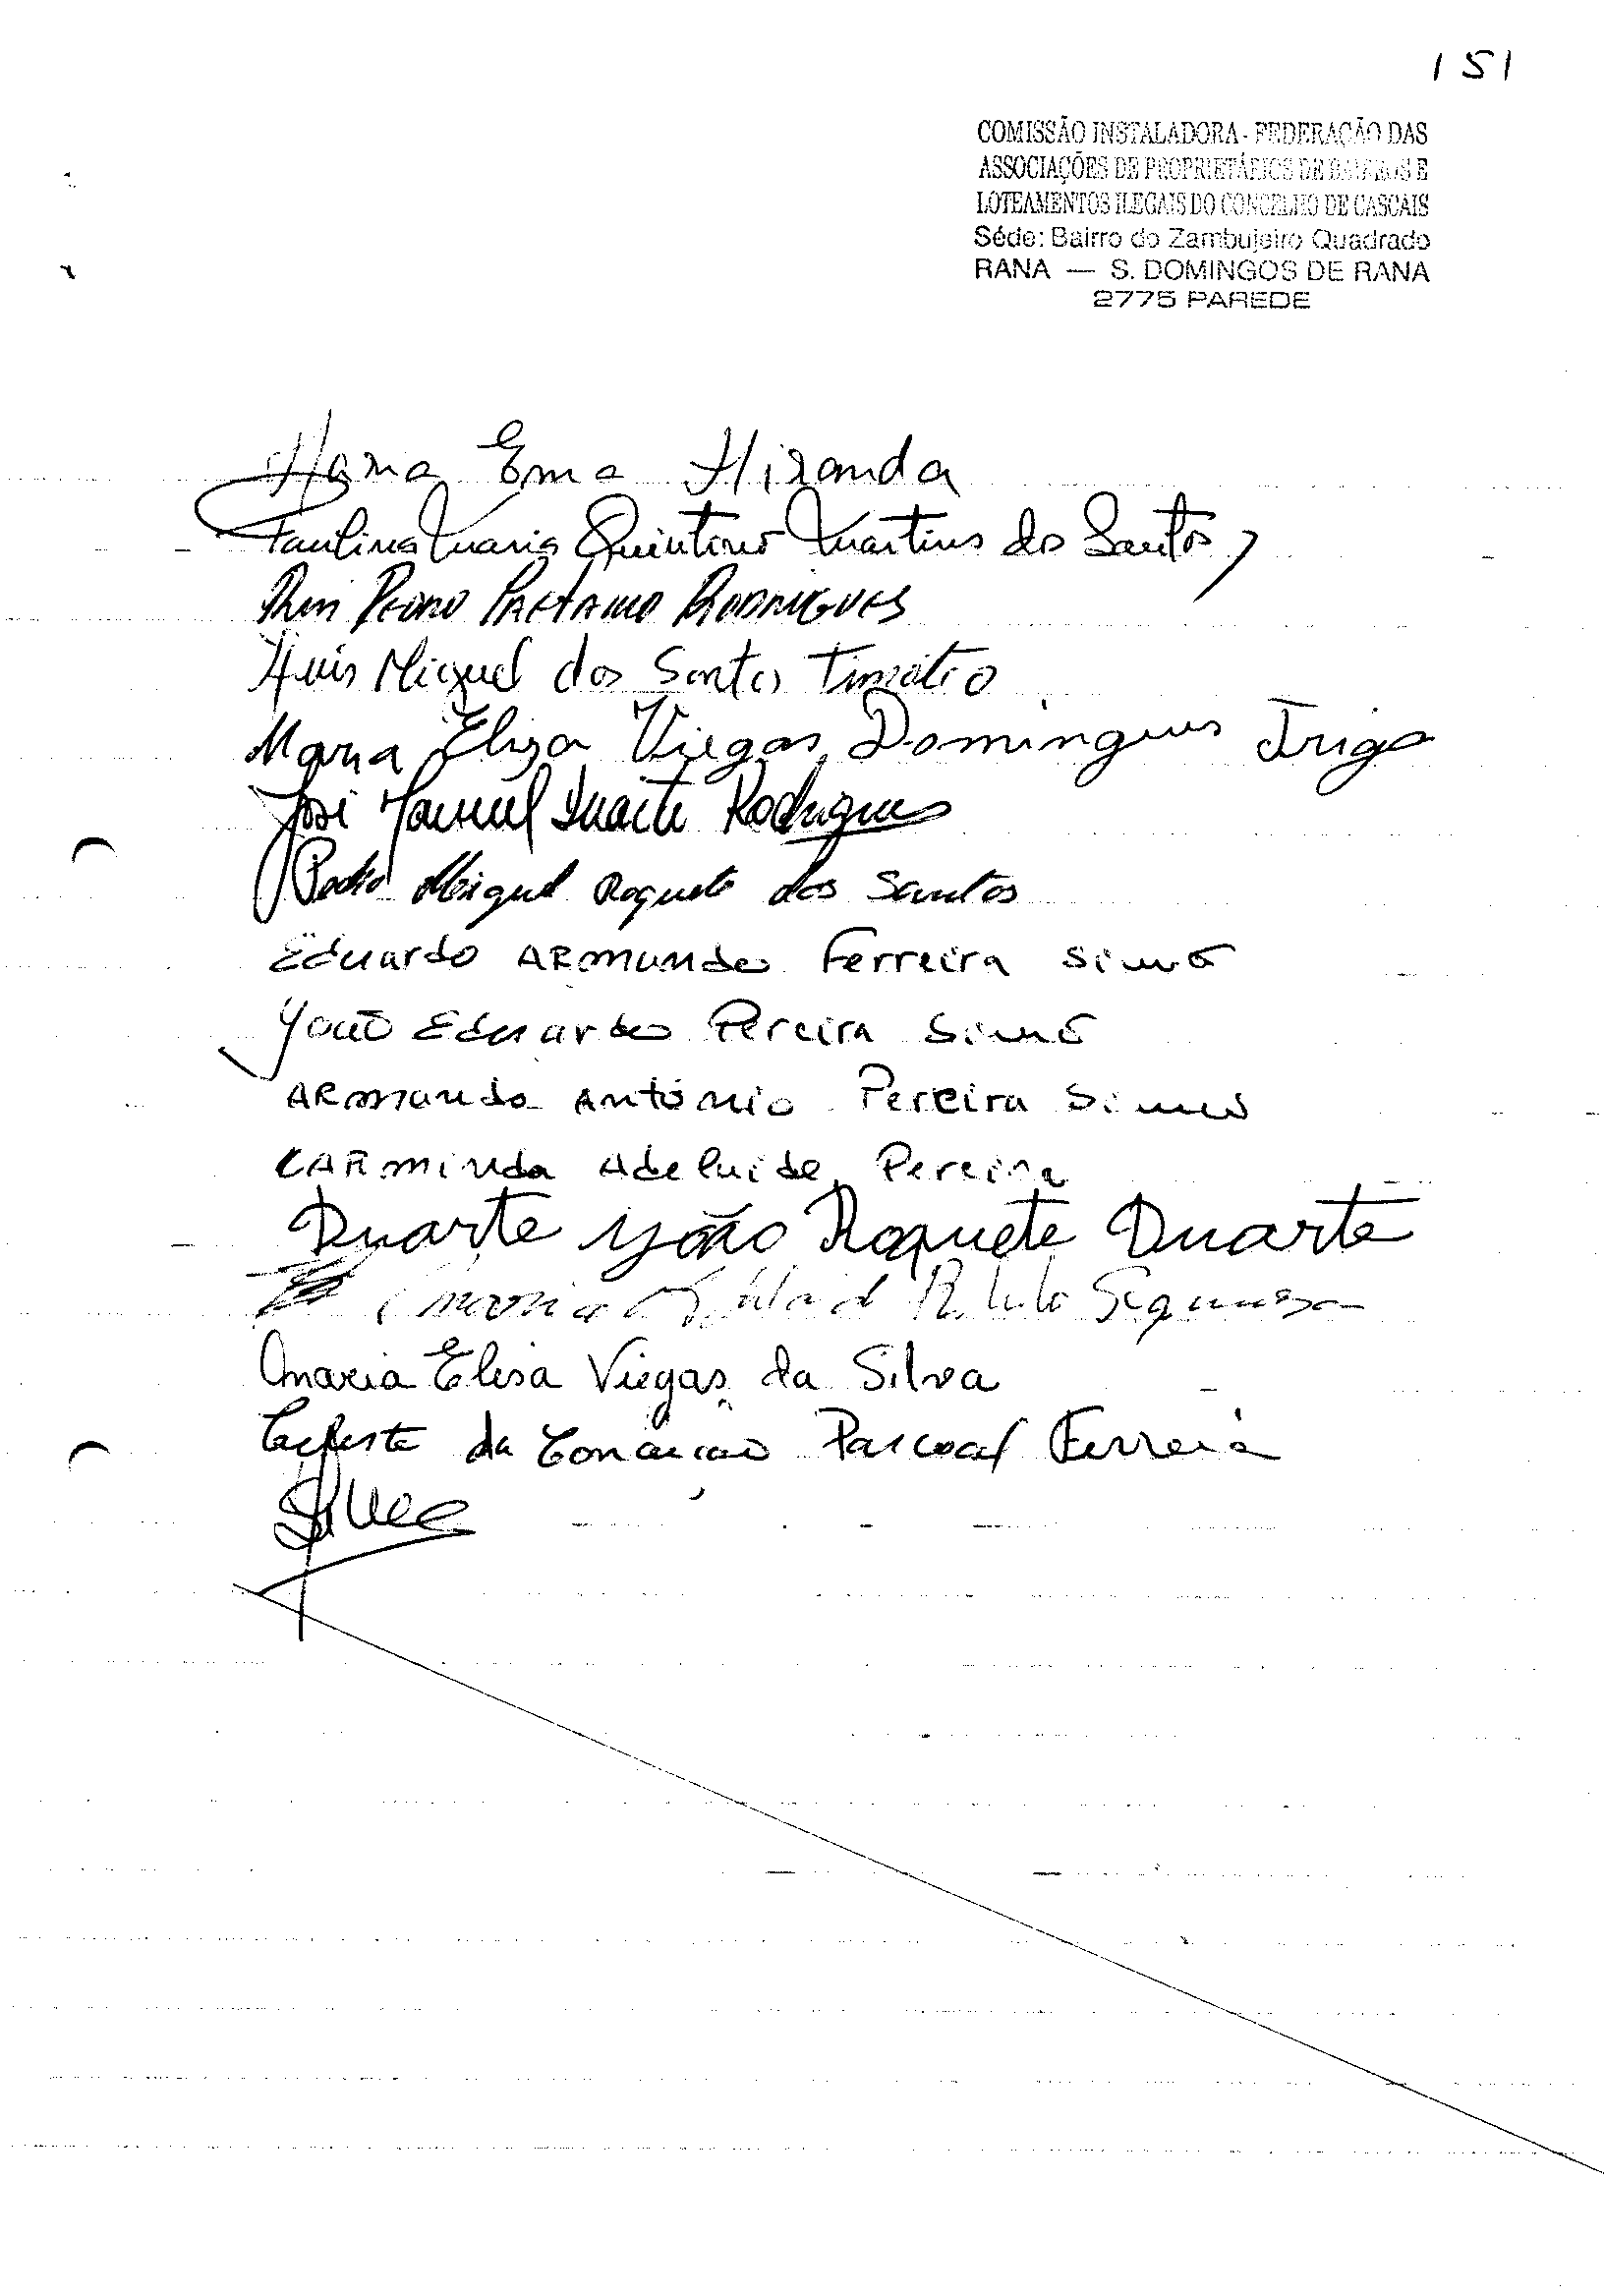 151
COMISSÃO INSTALADORA - FEDERAÇÃO DAS
ASSOCIAÇÕES DE PROPRIETÁRIOS DE BAIRROS E
LOTEAMENTOS ILEGAIS DO CONCELHO DE CASCAIS
Séde: Bairro do Zambujeiro Quadrado
RANA — S. DOMINGOS DE RANA
2775 PAREDE
Maria Ema Miranda
Paulina Maria Quintino Martins dos Santos
Rui PEDRO CAETANO RODRIGUES
Luis Miguel dos Santos Timótio
Maria Eliza Viegas Domingues Trigo
José Manuel Duarte Rodrigues
Pedro Miguel Roquete dos Santos
Eduardo ARmando Ferreira
João Eduardo Pereira
ARmando António Pereira
CARminda Adelaide Pereira
Duarte João Roquete Duarte
Maria
Maria Elisa Viegas da Silva
Celeste da Conceição Pascoal Ferreira
Silva